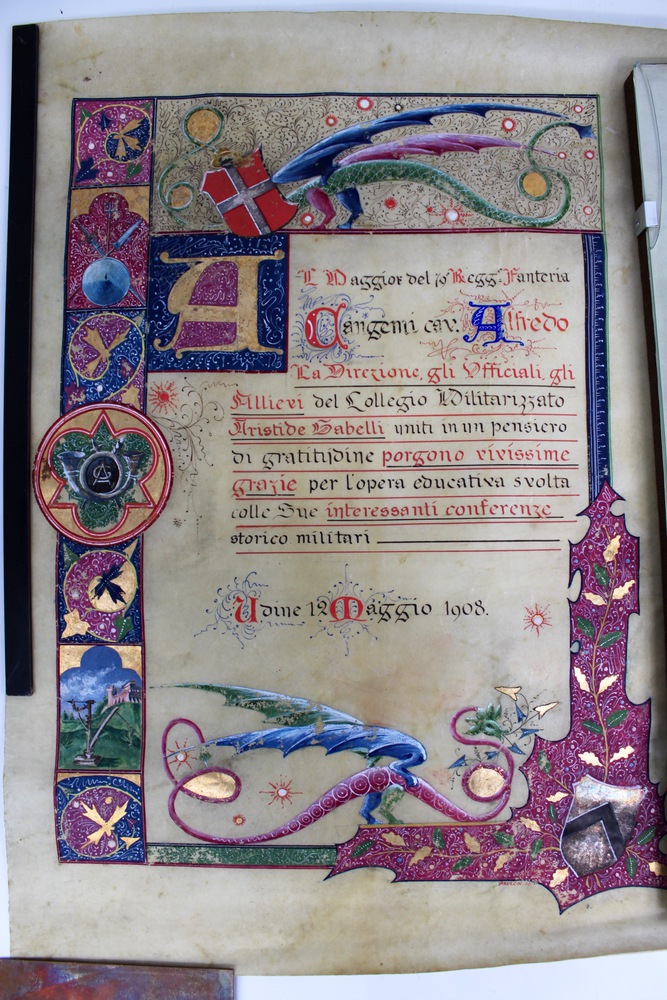 Al Maggior del 79° Regg. Fanteria
Cangemi cav. Alfredo
La Direzione, gli Ufficiali, gli
Allievi del Collegio Militarizzato
Aristide Gabelli uniti in un pensiero
di gratitudine porgono vivissime
grazie per l'opera educativa svolta
colle Sue interessanti conferenze
storico militari
Udine 12 Maggio 1908.